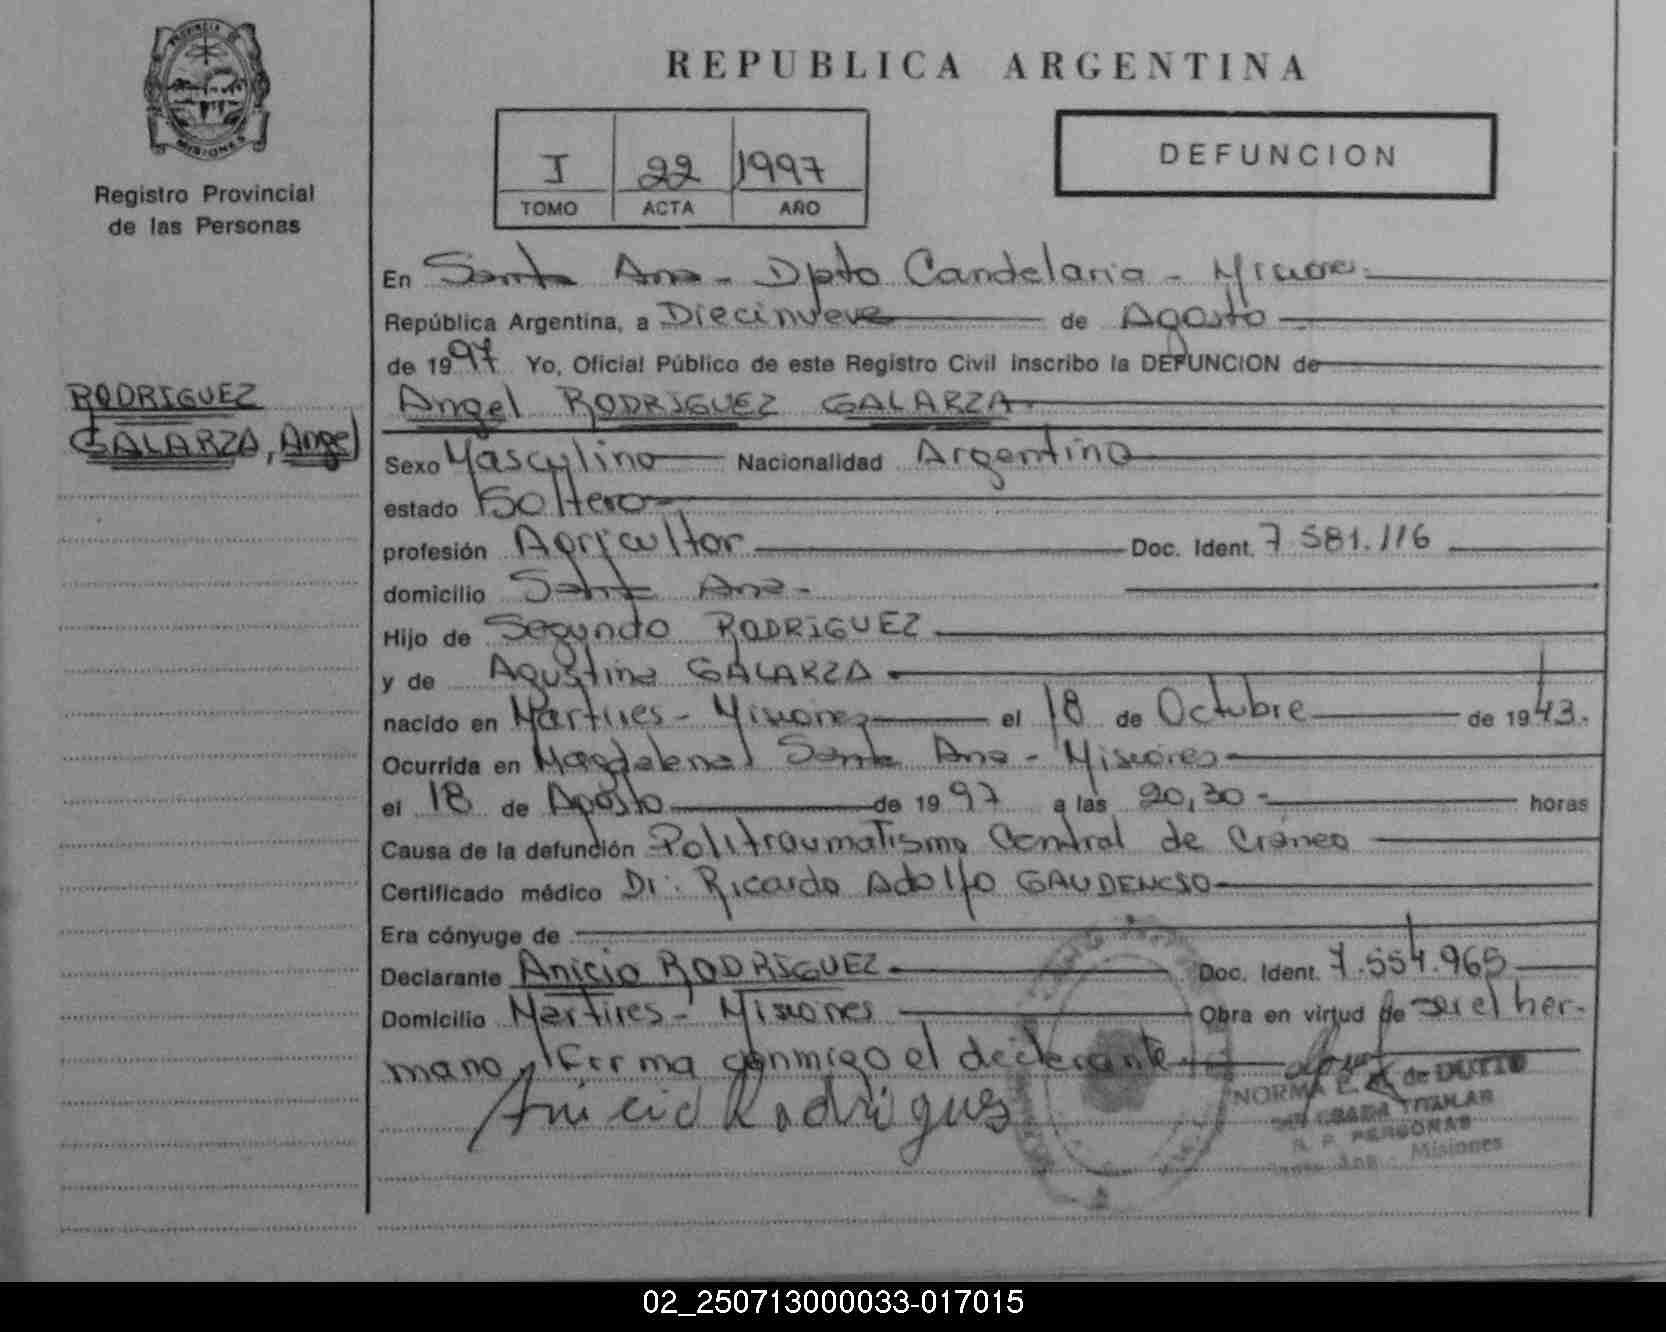 PROVINCIA DE
MISIONES
Registro Provincial
de las Personas
REPUBLICA ARGENTINA
I 22 1997
TOMO ACTA AÑO
DEFUNCION
En Santa Ana - Dpto Candelaria - Misiones.
República Argentina, a Diecinueve de Agosto
de 1997 Yo, Oficial Público de este Registro Civil inscribo la DEFUNCION de
RODRIGUEZ
GALARZA, Angel
Angel RODRIGUEZ GALARZA
Sexo Masculino Nacionalidad Argentino
estado Soltero
profesión Agricultor Doc. Ident. 7.581.116
domicilio Santa Ana -
Hijo de Segundo RODRIGUEZ
y de Agustina GALARZA
nacido en Martires - Misiones el 18 de Octubre de 1943.
Ocurrida en Magdalena Santa Ana - Misiones
el 18 de Agosto de 1997 a las 20,30 - horas
Causa de la defunción Politraumatismo Central de Craneo
Certificado médico Dr. Ricardo Adolfo GAUDENCSO
Era cónyuge de
Declarante Anicio RODRIGUEZ Doc. Ident. 7.554.965
Domicilio Martires - Misiones Obra en virtud de ser el her-
mano, firma conmigo el declarante
Anicio Rodrigues
NORMA E. de DUTTO
TITULAR
R. P. PERSONAS
Santa Ana - Misiones
02_250713000033-017015